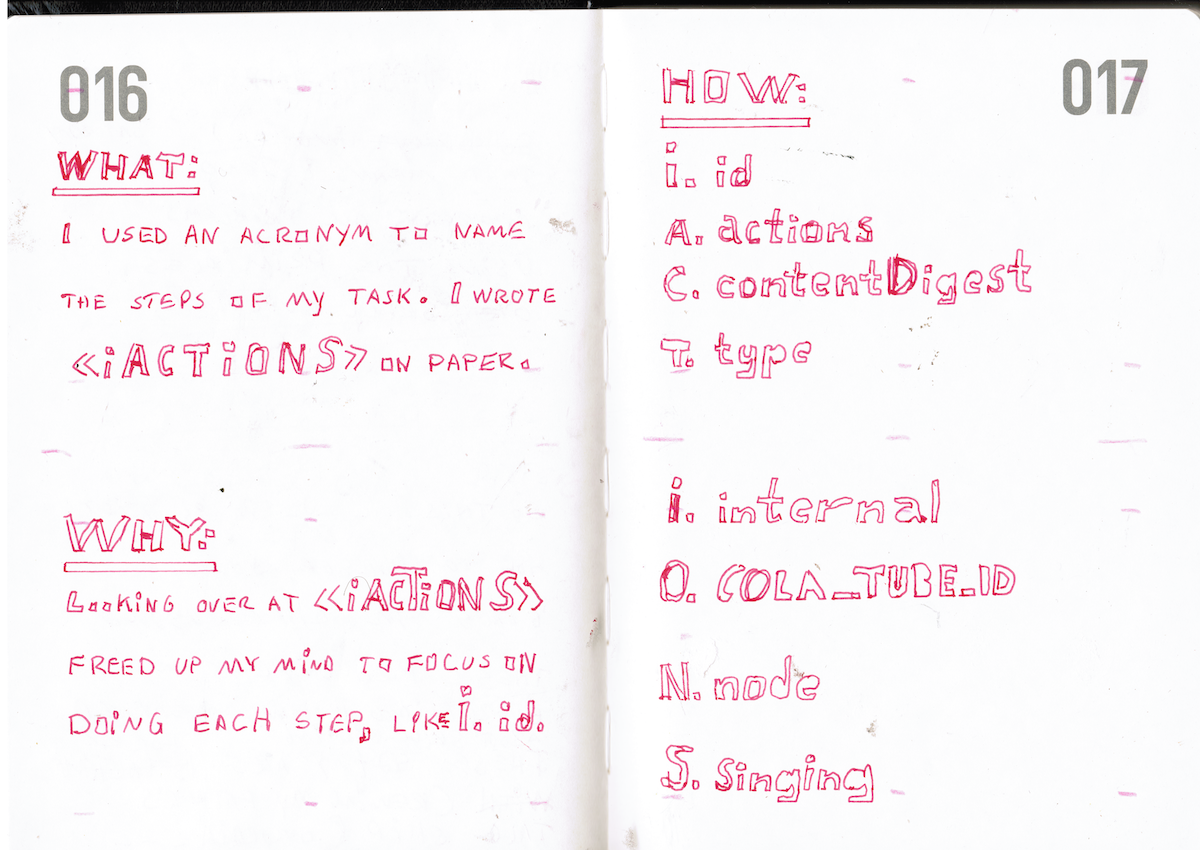 016
WHAT:
I USED AN ACRONYM TO NAME
THE STEPS OF MY TASK. I WROTE
«iACTiONS» ON PAPER.
WHY:
LOOKING OVER AT «iACTiONS»
FREED UP MY MIND TO FOCUS ON
DOING EACH STEP, LIKE i. id.
017
HOW:
i. id
A. actions
C. contentDigest
T. type
i. internal
O. COLA_TUBE_ID
N. node
S. singing